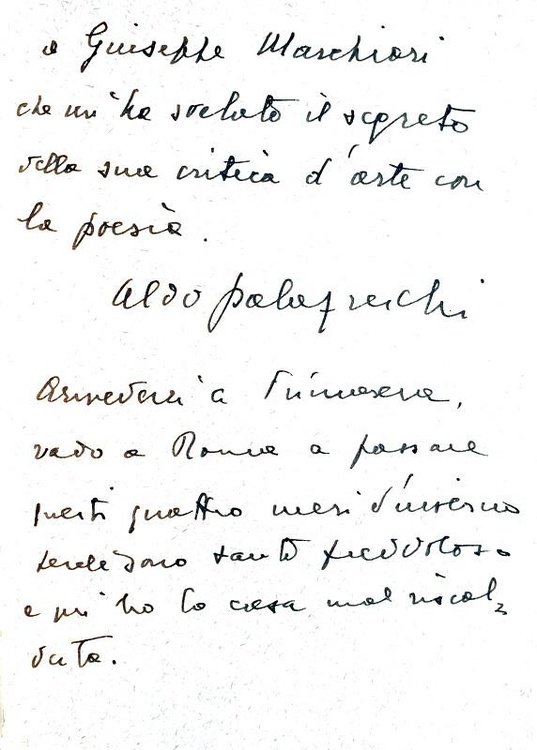 a Giuseppe Marchiori
che mi ha svelato il segreto
della sua critica d'arte con
la poesia.
Aldo Palazzeschi
Arrivederci a Primavera,
vado a Roma a passare
questi quattro mesi d'inverno
perché sono tanto freddoloso
e qui ho la casa mal riscal-
data.